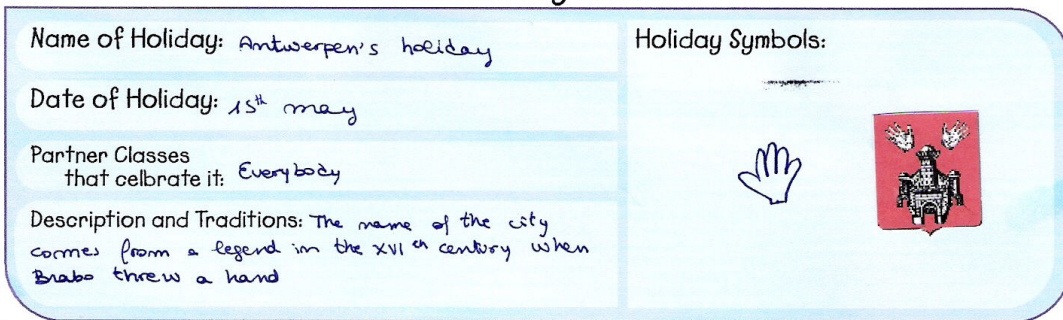 Name of Holiday: Antwerpen's holiday
Date of Holiday: 15th may
Partner Classes
that celbrate it: Everybody
Description and Traditions: The name of the city
comes from a legend in the XVIth century when
Brabo threw a hand
Holiday Symbols: